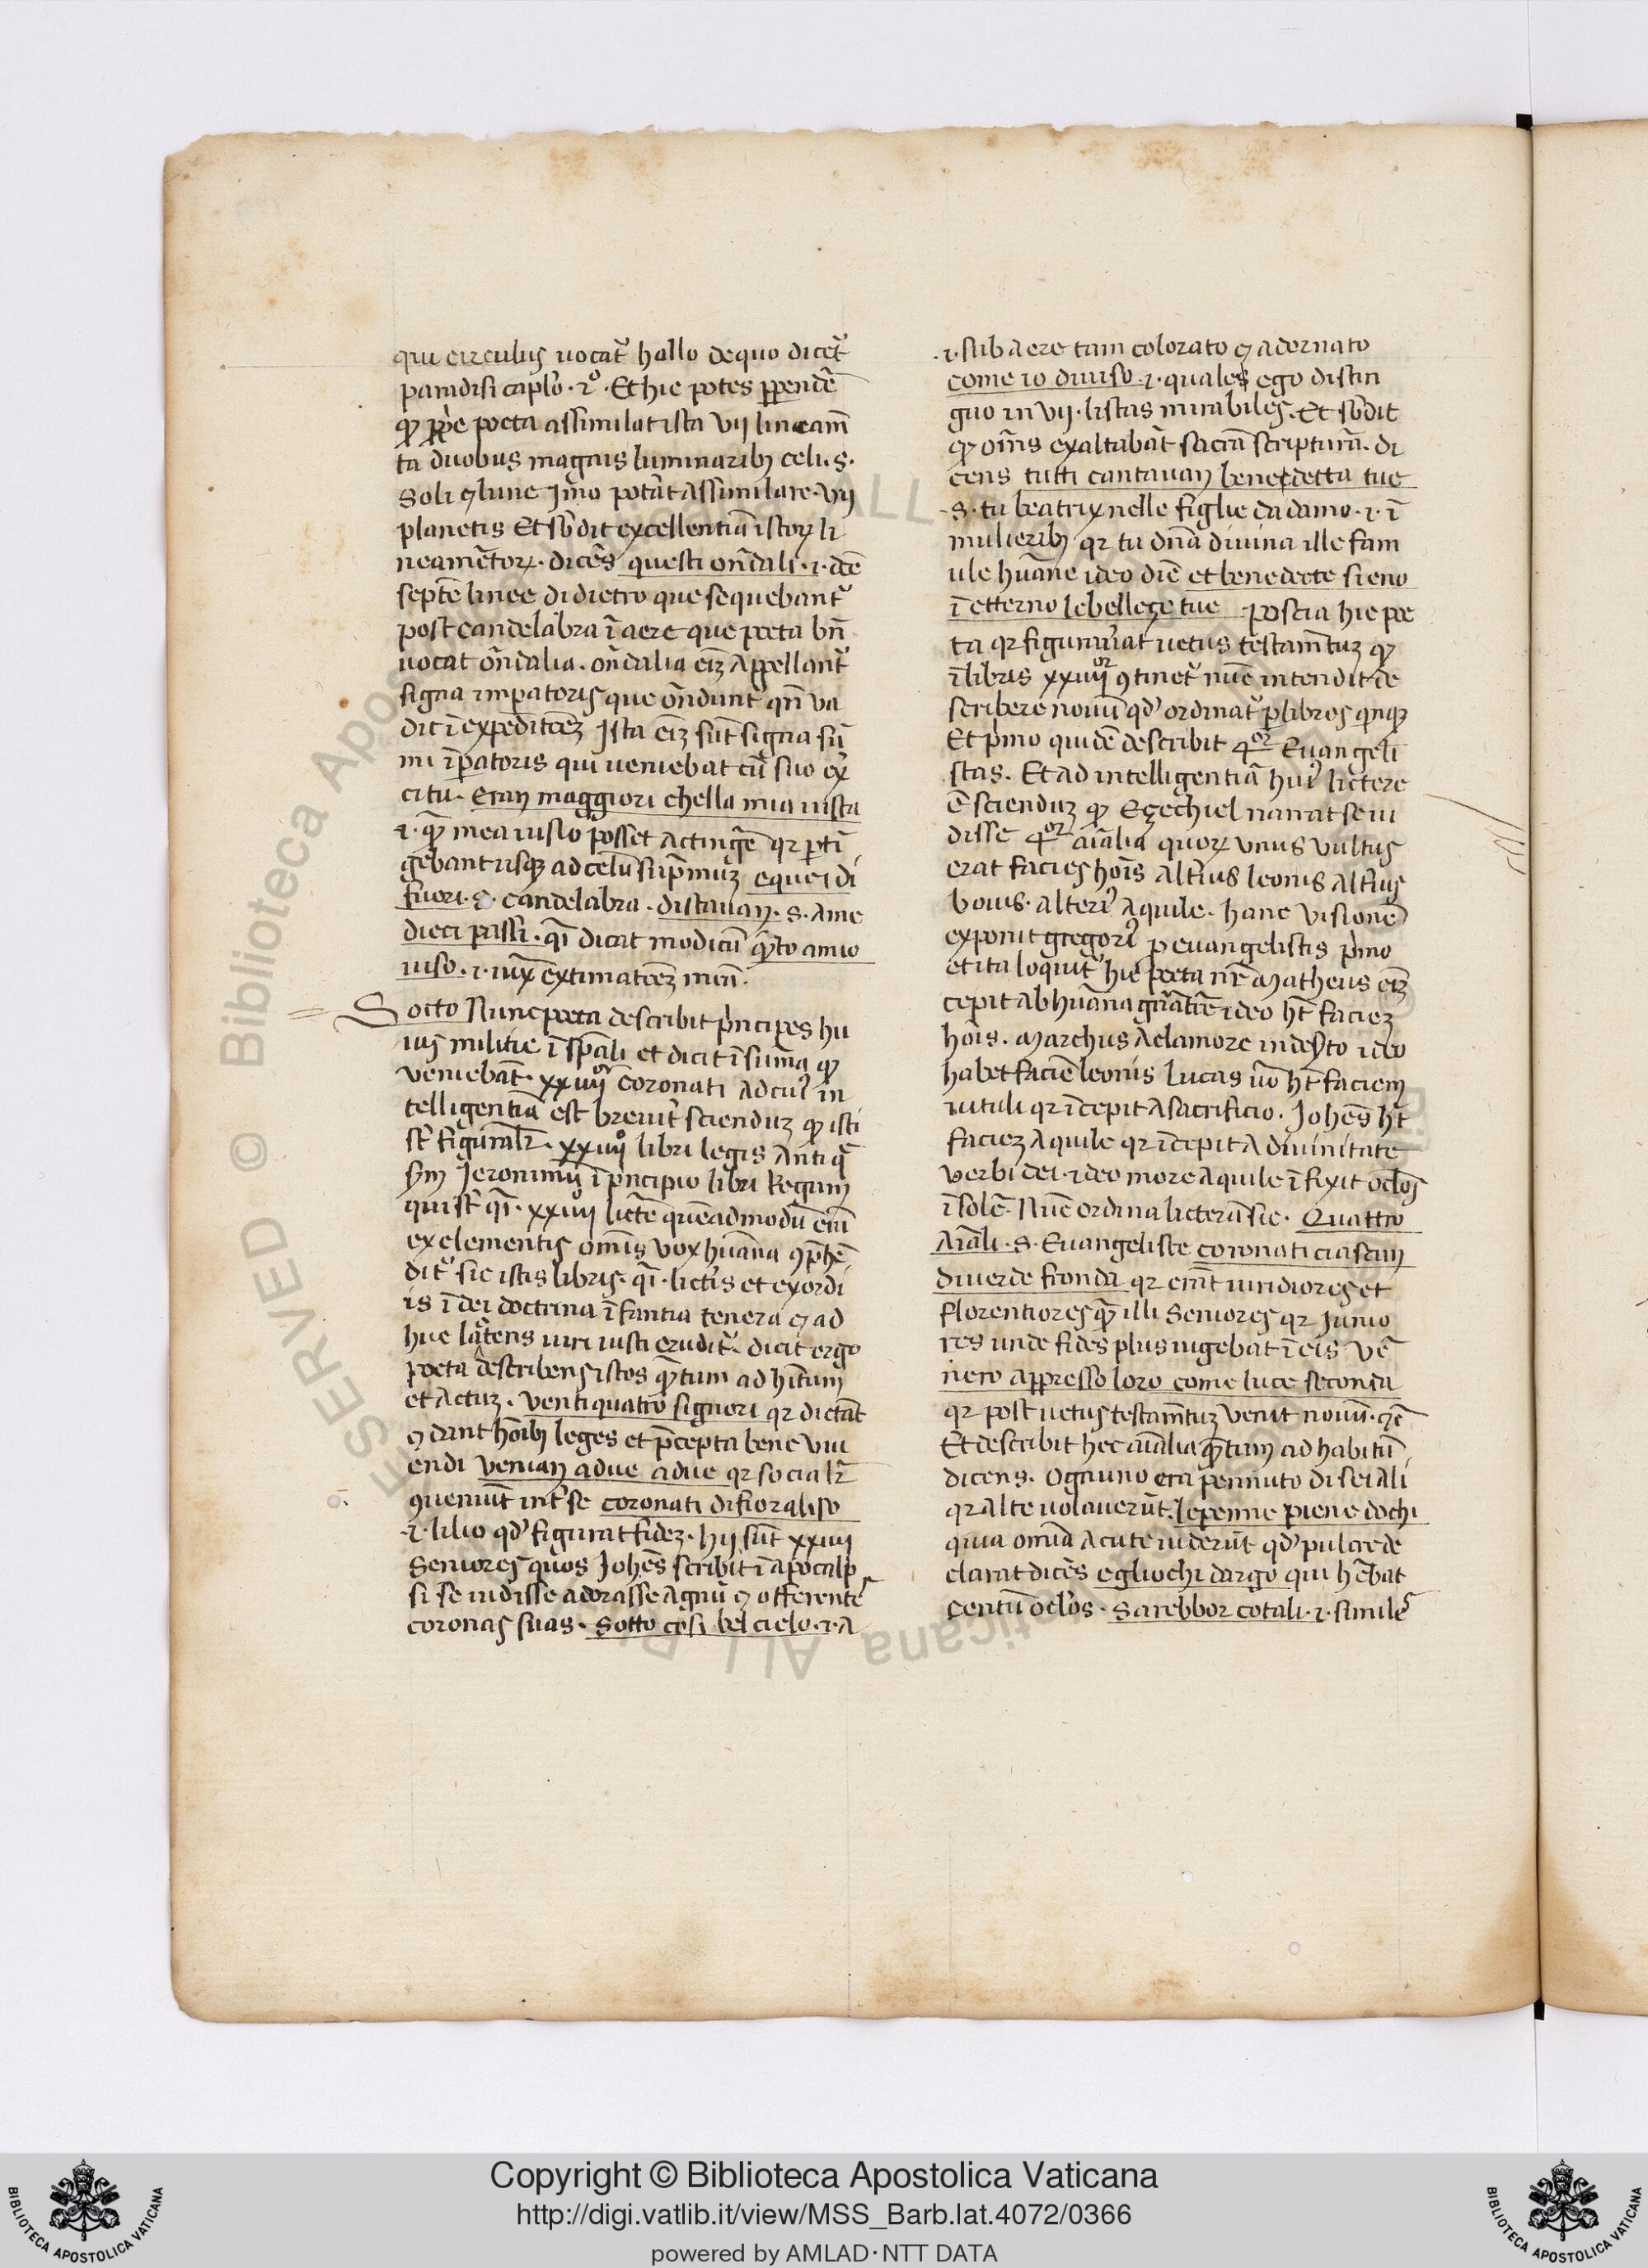 qui circulus uocat̃ hallo dequo dicet̃
paradisi caplo . 2º . Et hic potes ꝑpendẽ
ꝙ ꝓpe poeta assimilat ista vij lineam̃
ta duobus magnis luminarib; celi . s .
Soli ⁊ lune Jmo potat̃ assimilare . vij
planetis Et sb̃dit excellentiã istoꝝ li
neamẽtoꝝ . dicẽs questi onẽdali . i . dcẽ
septẽ linee di dietro que sequebant̃
post candelabra ĩ aere que poeta bñ
uocat õndalia . õndalia eĩz appellant̃
signa inpatoris que õndunt̃ qñ va
dit ĩ expeditõez Ista eĩz sũt signa sũ
mi ĩꝑatoris qui ueniebat cũ suo ex̃
citu . Eran maggiori chella mia uista
i . ꝙ̃ mea uisio posset actingẽ qr ꝑtĩ
gebant usqꝫ ad celũ supͥmuz e quei di
fuori . s . candelabra . distauan . s . a me
dieci passi . qĩ dicat modicũ qͣ̃to a mio
uiso . i . iux̃ extimatõez meã .
Socto Nunc poeta describit pͥncipes hu
ius militie ĩ spãli et dicit ĩ suma ꝙ
veniebãt . xxiiijor coronati ad cuiꝰ in
telligentiã est breuit̃ scienduz ꝙ isti
st̃ figuralr̃ . xxiiijº libri legis antiq̃
sm̃ Jeronimũ ĩ pͥncipio libri Regum
qui st̃ qĩ . xxiiij lictẽ quẽadmodũ eĩz
ex elementis om̃is vox huãna ꝯp̃hẽ
dit̃ sic istis libris . qĩ . lict̃is et exordi
is ĩ dei doctrina ĩfantia tenera ⁊ ad
huc lactens uiri iusti erudit̃ . dicit ergo
poeta describens istos qͣ̃tum ad hitum
et actuz . venti quatro signori qr dictãt
⁊ dant hoĩb; leges et p̃cepta bene viu
endi venian a due a due qr socialr̃
ꝯueniũt int̃ se coronati di fioraliso
. i . lilio qd̃ figurat fidez . hij sũt xxiiij
Seniores quos Johẽs scribit ĩ apocalip
si se uidisse adorasse agnũ ⁊ offerentes
coronas suas . Sotto cosi bel cielo . i . a
. i . sub aere tam colorato ⁊ adornato
come io diuiso . i . quales ego distin
guo in vij . listas mirabiles . Et sb̃dit
ꝙ om̃s exaltabãt sacrã scripturã . di
cens tutti cantauan benedetta tue
. s . tu beatrix nelle figlie da damo . i . ĩ
mulierib; qr tu dñã diuina ille fam
ule huãne ideo dic̃ et benedecte sieno
ĩ etterno le belleçe tue Poscia hic poe
ta qr figurauat uetus testam̃tuz ꝙ
ĩ libris xxiiijor ꝯtinet̃ nũc intendit de
scribere nouũ qd̃ ordinat̃ ꝑ libros qͥnqꝫ
Et pͥmo quidẽ describit 4or Euangeli
stas . Et ad intelligentiã huiꝰ lictere
ẽ scienduz ꝙ Eçechiel narrat se ui
disse 4or aĩalia quoꝝ vnus vultus
erat facies hoĩs alt̃ius leonis alt̃ius
bouis . alteriꝰ aquile . hanc visionẽ
exponit gregoriꝰ ꝑ euangelistis pͥmo
et ita loquit̃ hic poeta nr̃ Matheus eĩz
cepit ab huãna gñatiõe ideo ht̃ faciez
hoĩs . Marchus a clamore in desͬto ideo
habet faciẽ leonis Lucas ũo ht̃ faciem
uituli qr ĩcepit a sacrificio . Johẽs ht̃
faciez aquile qr ĩcepit a diuinitate
verbi dei . ideo more aquile ĩfixit ocl̃os
ĩ solẽ . Nũc ordina licterã sic . Quattro
aĩali . s . Euangeliste coronati ciascun
di uerde fronda qr erãt uiridiores et
florentiores qͣ̃ illi Seniores qr Junio
res unde fides plus uigebat ĩ eis vẽ
nero appresso loro come luce seconda
qr post uetus testam̃tuz venit nouũ . ⁊c̃
Et describit hec aĩalia qͣ̃tum ad habitũ
dicens . Ognuno era pennuto di sei ali
qr alte uolauerũt . le penne piene dochi
quia oĩa acute uiderũt qd̃ pulcre de
clarat dicẽs e gliochi dargo qui hẽbat
centũ ocl̃os . sarebbor cotali . i . similes
Copyright © Biblioteca Apostolica Vaticana
http://digi.vatlib.it/view/MSS_Barb.lat.4072/0366
powered by AMLAD·NTT DATA
BIBLIOTECA APOSTOLICA VATICANA
BIBLIOTECA APOSTOLICA VATICANA